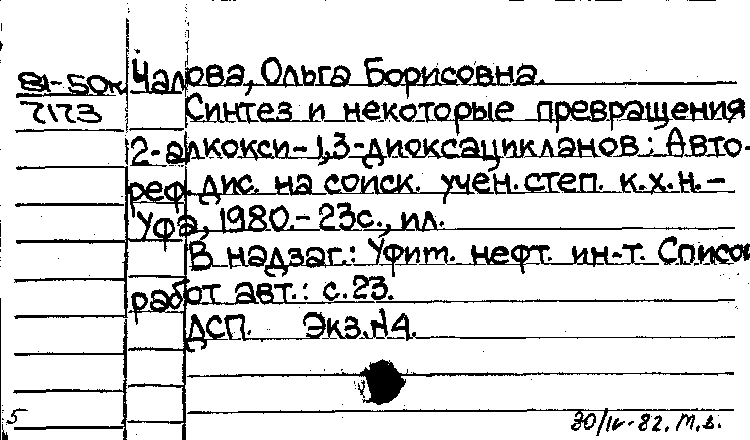 81-50к Чалова, Ольга Борисовна.
7173 Синтез и некоторые превращения
2-алкокси-1,3-диоксацикланов: Авто-
реф. дис. на соиск. учен. степ. к.х.н. –
Уфа, 1980. – 23с., ил.
В надзаг.: Уфим. нефт. ин-т. Список
работ авт.: с.23.
ДСП. Экз.N4.
5
30/IV-82.